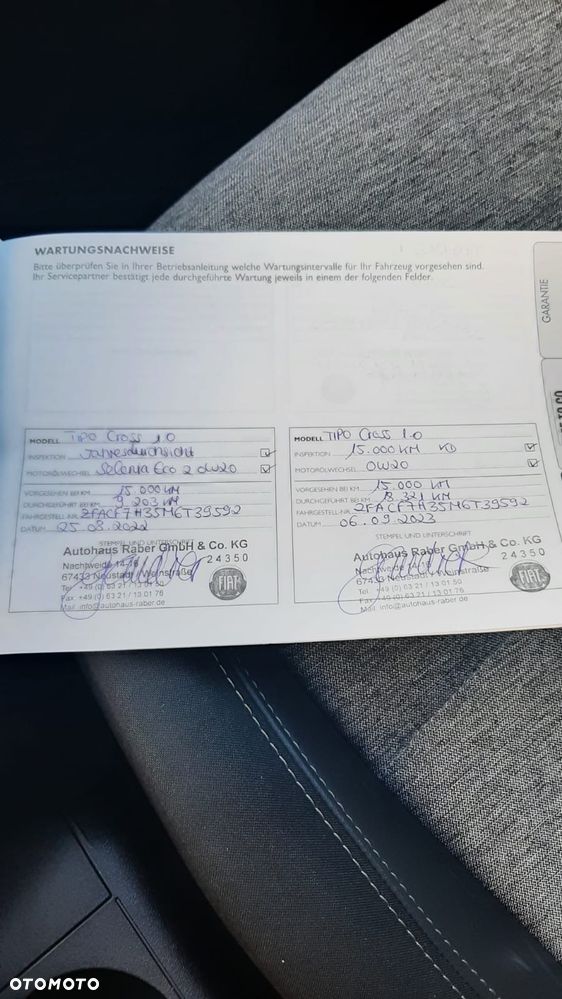 WARTUNGSNACHWEISE
Bitte überprüfen Sie in Ihrer Betriebsanleitung welche Wartungsintervalle für Ihr Fahrzeug vorgesehen sind.
Ihr Servicepartner bestätigt jede durchgeführte Wartung jeweils in einem der folgenden Felder.
GARANTIE
MODELL TIPO Cross 1.0
INSPEKTION Jahresdurchsicht
MOTORÖLWECHSEL Selenia Eco 2 0W20
VORGESEHEN BEI KM 15.000 KM
DURCHGEFÜHRT BEI KM 9 203 KM
FAHRGESTELL-NR. ZFACF7H35M6T39592
DATUM 25.08.2022
STEMPEL UND UNTERSCHRIFT
Autohaus Raber GmbH & Co. KG
Nachtweide
24350
67433 Neustadt / Weinstraße
Tel. +49 (0) 63 21 / 13 01 50
Fax +49 (0) 63 21 / 13 01 76
Mail info@autohaus-raber.de
FIAT
MODELL TIPO Cross 1.0
INSPEKTION 15.000 KM
MOTORÖLWECHSEL 0W20
VORGESEHEN BEI KM 15.000 KM
DURCHGEFÜHRT BEI KM 18 321 KM
FAHRGESTELL-NR. ZFACF7H35M6T39592
DATUM 06.09.2023
STEMPEL UND UNTERSCHRIFT
Autohaus Raber GmbH & Co. KG
Nachtweide
24350
67433 Neustadt / Weinstraße
Tel. +49 (0) 63 21 / 13 01 50
Fax +49 (0) 63 21 / 13 01 76
Mail info@autohaus-raber.de
FIAT
OTOMOTO